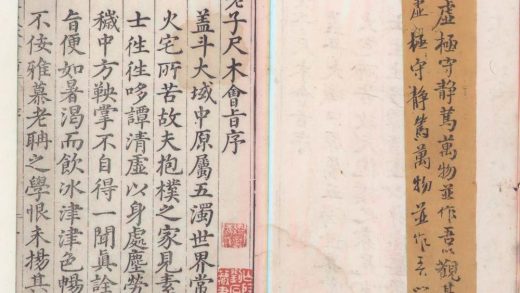 虛極守靜篤萬物並作吾以觀其
虛極守靜篤萬物並作吾以
老子尺木會旨序
蓋斗大域中原屬五濁世界常
火宅所苦故夫抱樸之家見素
士徃徃哆譚清虛以身處塵勞
穢中方鞅掌不自得一聞真詮
旨便如暑渴而飲冰津津色暢
不佞雅慕老聃之學恨未揚其